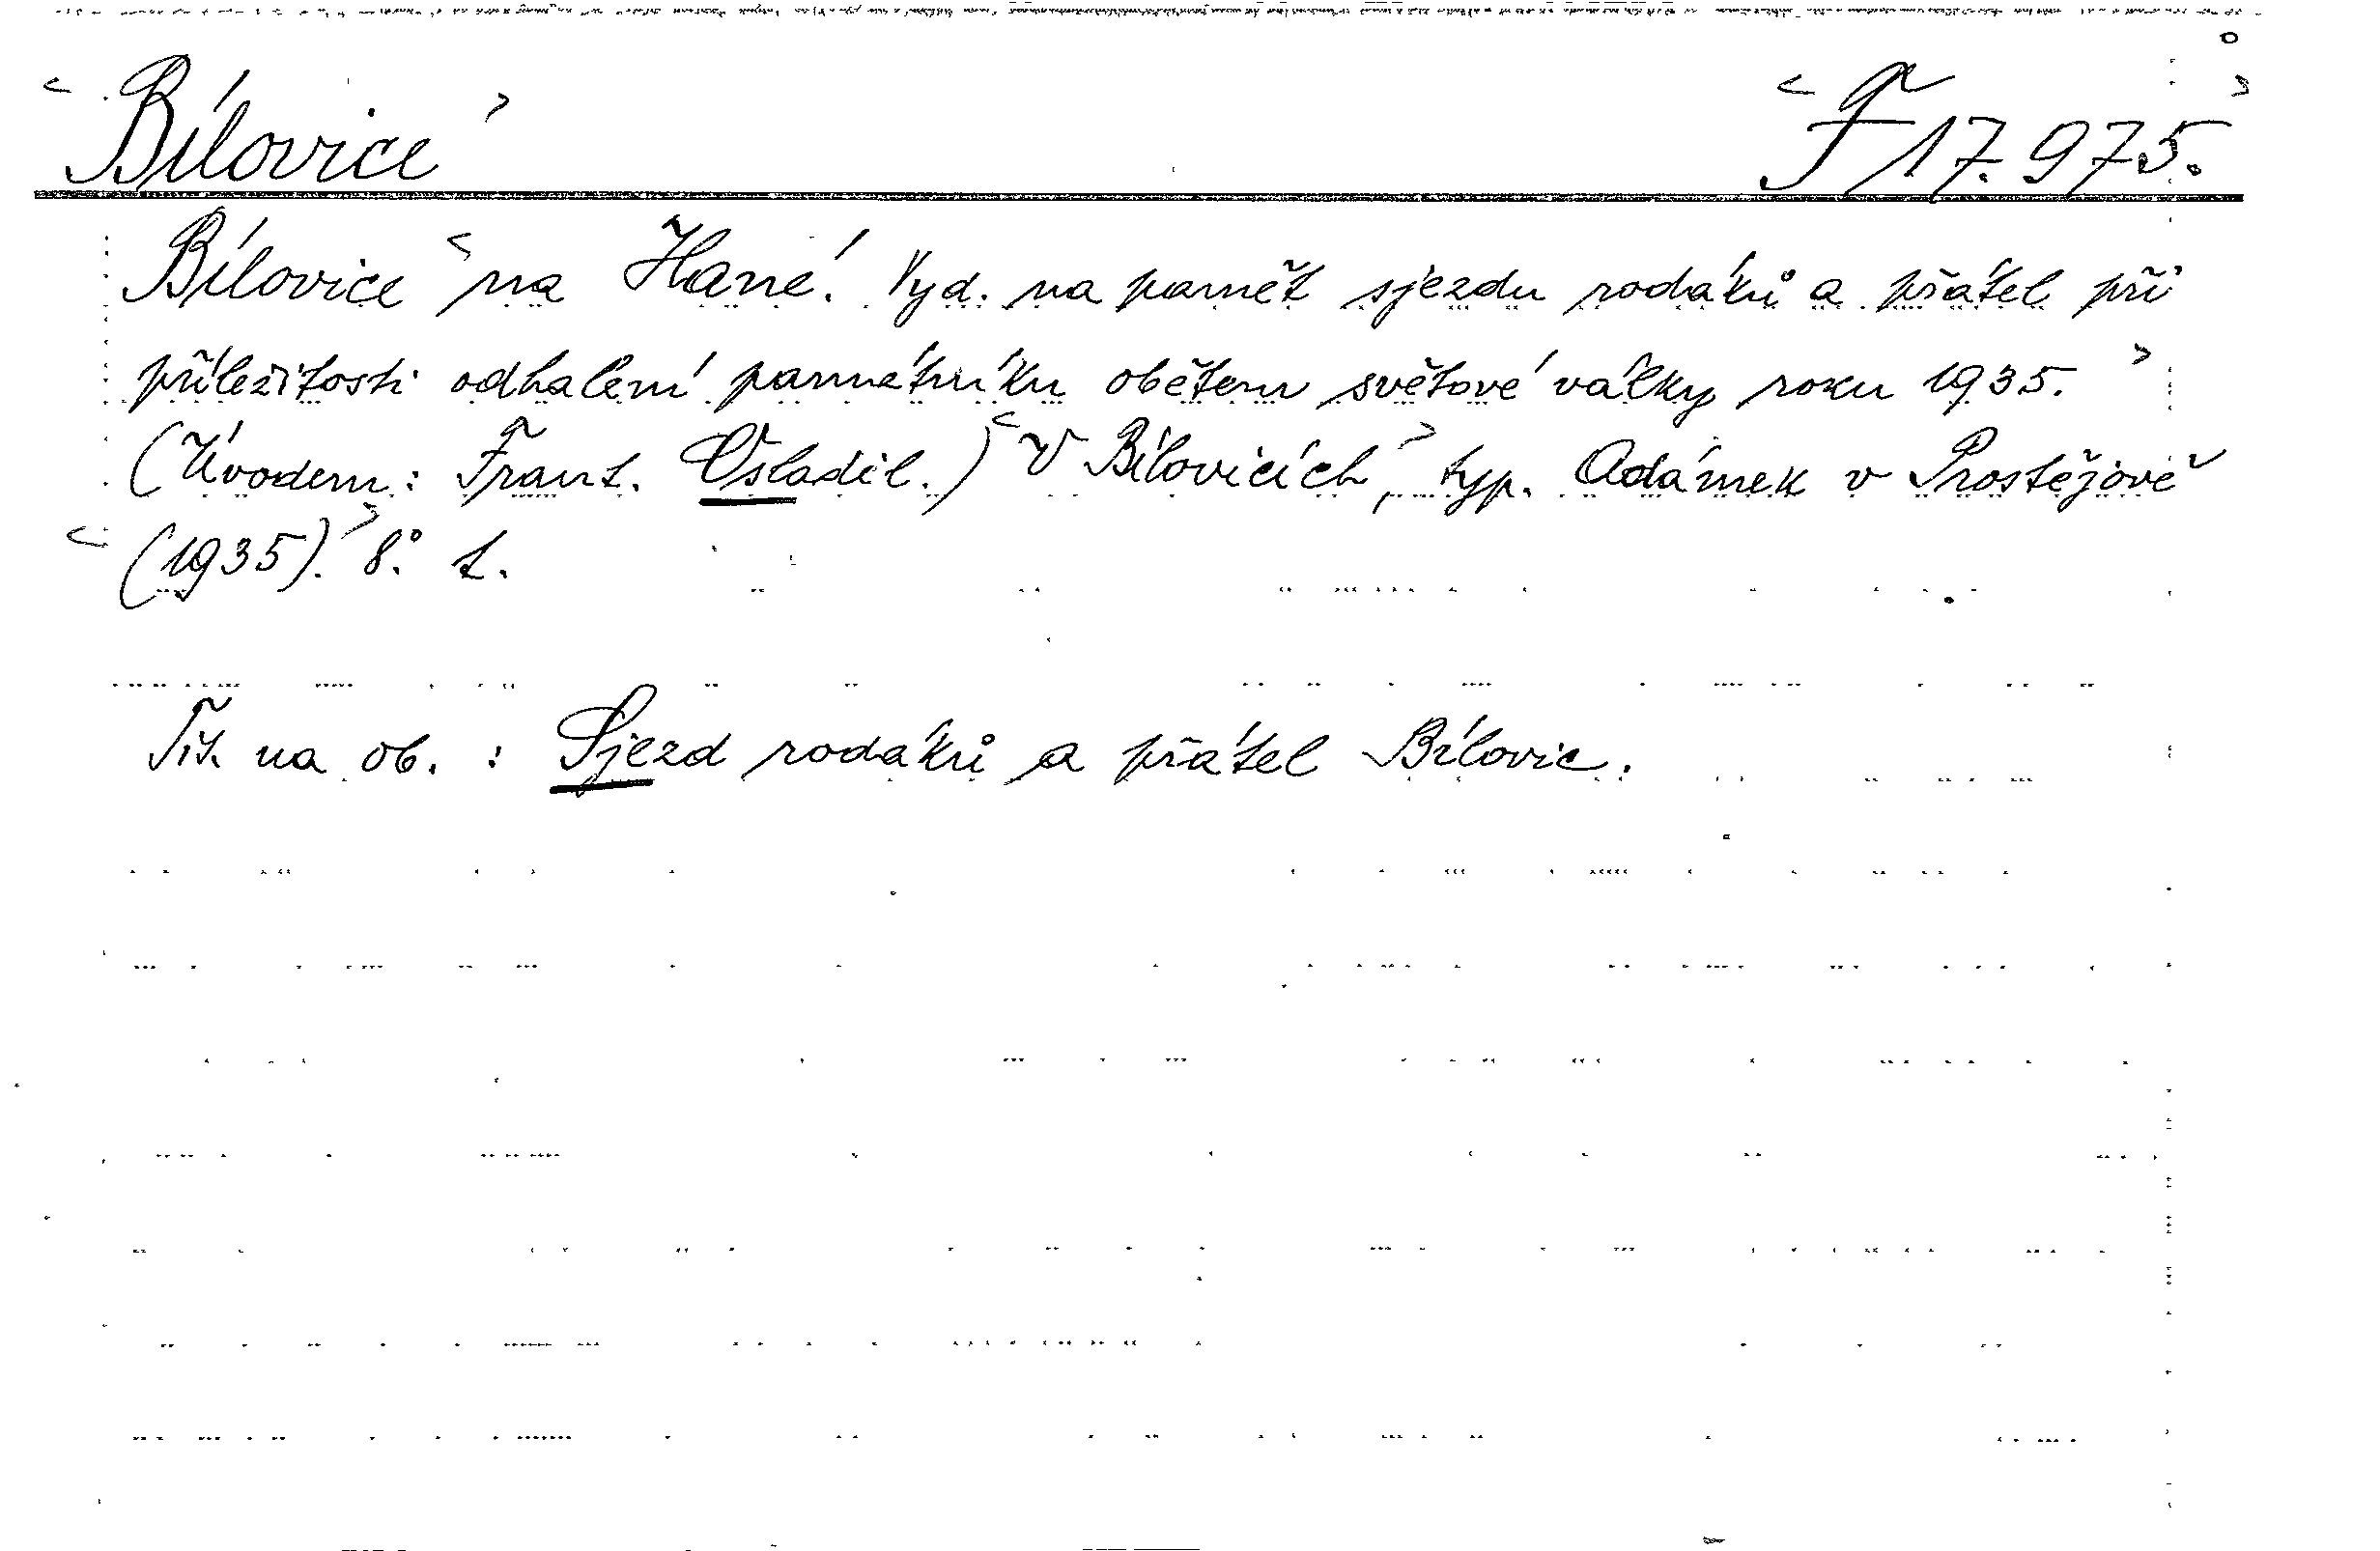 <Bílovice> <F 17.975.>
Bílovice <na Hané. Vyd. na pamět sjezdu rodáků a přátel při
příležitosti odhalení památníku obětem světové války roku 1935.>
(Úvodem: Frant. Osladil.) <V Bílovicích,> typ. Adámek v Prostějově
<(1935).> 8°. t.
Tit. na ob. : Sjezd rodáků a přátel Bílovic.